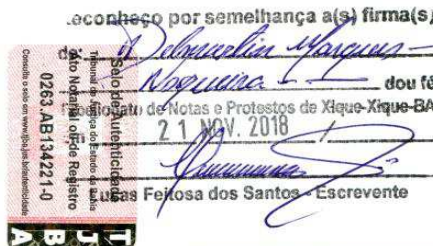 .econheço por semelhança a(s) firma(s)
Marques
Nogueira dou fé
Tabelionato de Notas e Protestos de Xique-Xique-BA
21 NOV. 2018
Lucas Feitosa dos Santos - Escrevente
Selo de Autenticidade
Tribunal de Justiça do Estado da Bahia
Ato Notarial ou de Registro
0263.AB134221-0
Consulte o selo em www.tjba.jus.br/autenticidade
TJBA